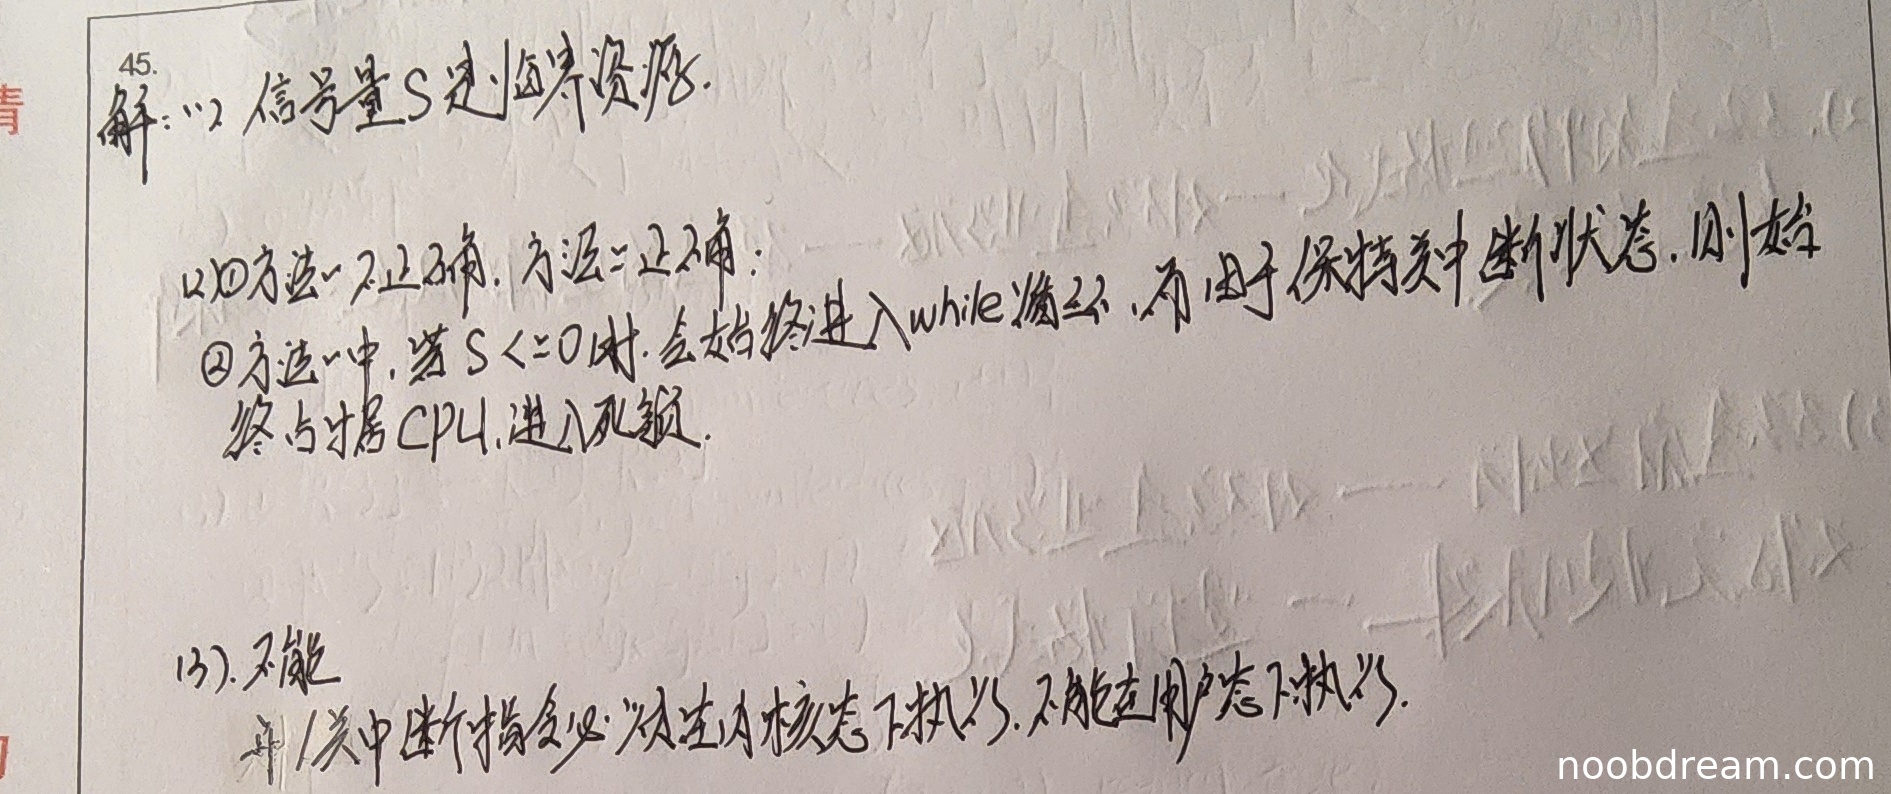 情
45.
解:(1) 信号量S是临界资源.
(2)①方法一不正确,方法二正确;
②方法一中,若S<=0时.会始终进入while循环,而由于保持关中断状态.则始
终占据CPU,进入死锁.
(3).不能
开/关中断指令必须在内核态下执行.不能在用户态下执行.
noobdream.com